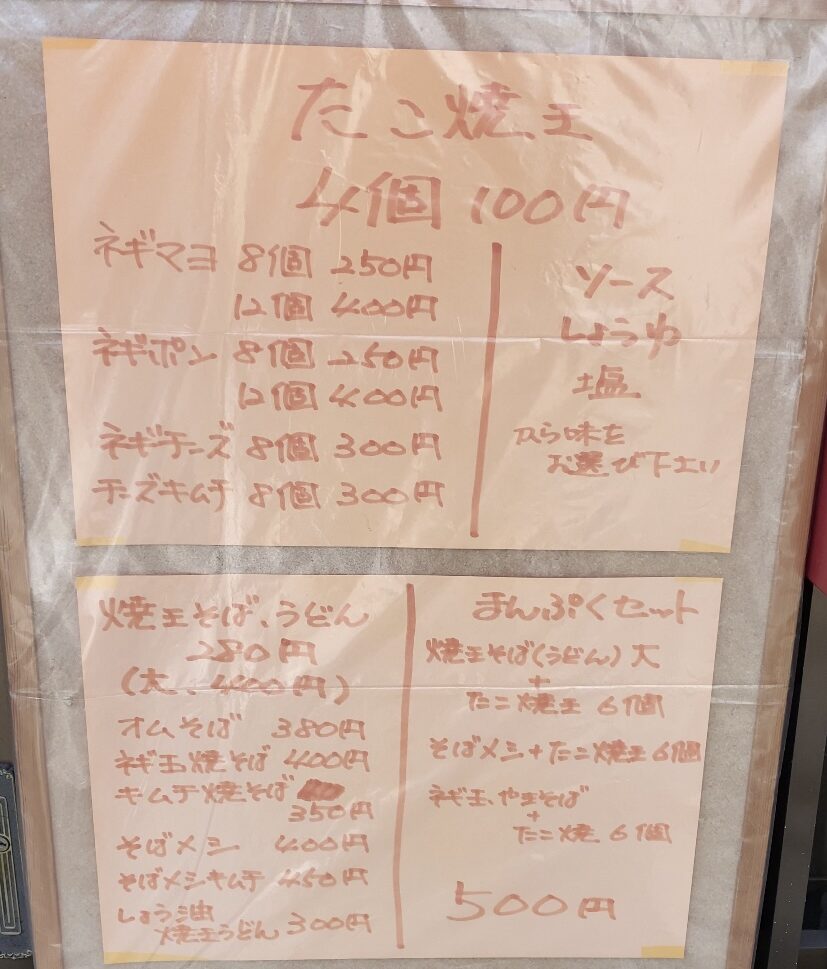 たこ焼王
4個 100円
ネギマヨ 8個 250円
12個 400円
ネギポン 8個 250円
12個 400円
ネギチーズ 8個 300円
チーズキムチ 8個 300円
ソース
しょうゆ
塩
から味を
お選び下さい
焼王そば、うどん
280円
(大、400円)
オムそば 380円
ネギ玉焼そば 400円
キムチ焼そば
350円
そばメシ 400円
そばメシキムチ 450円
しょう油
焼王うどん 300円
まんぷくセット
焼王そば(うどん)大
+
たこ焼王 6個
そばメシ+たこ焼王 6個
ネギ玉、やきそば
+
たこ焼 6個
500円